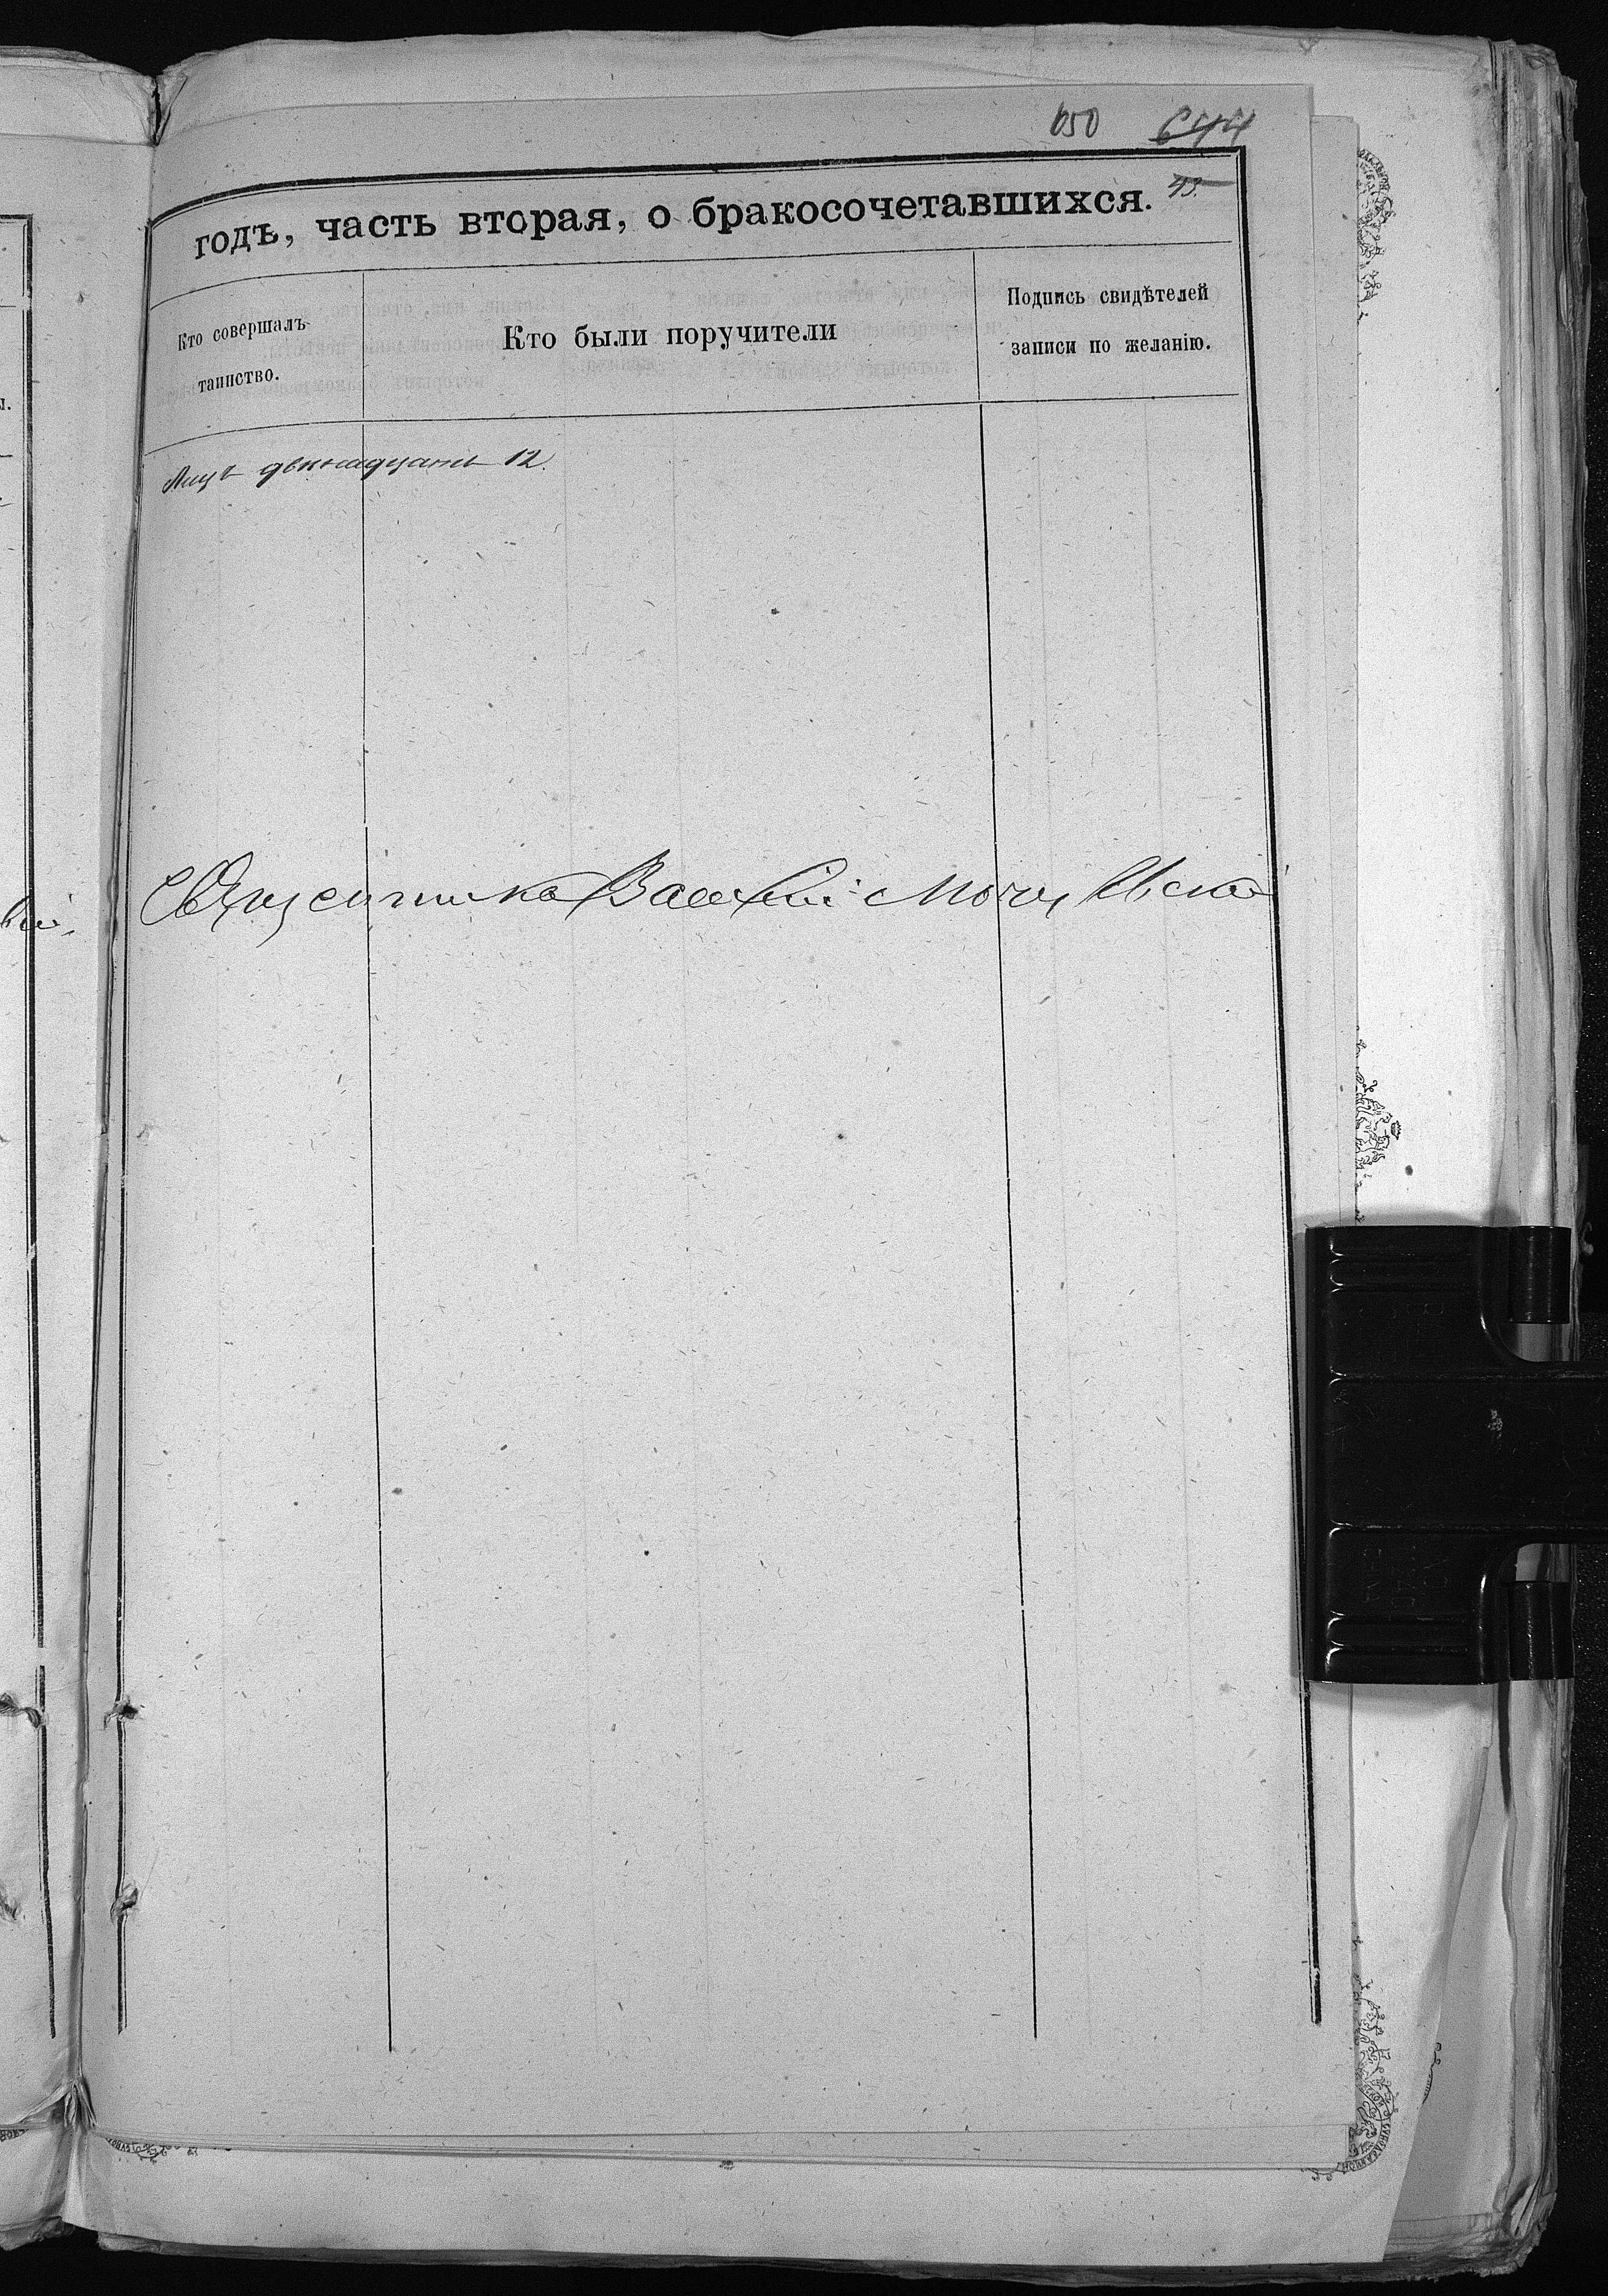 650 644
43.
годъ, часть вторая, о бракосочетавшихся.
Кто совершалъ таинство.
Кто были поручители
Подпись свидѣтелей записи по желанію.
Лицъ двѣнадцать 12.
Священникъ Василій